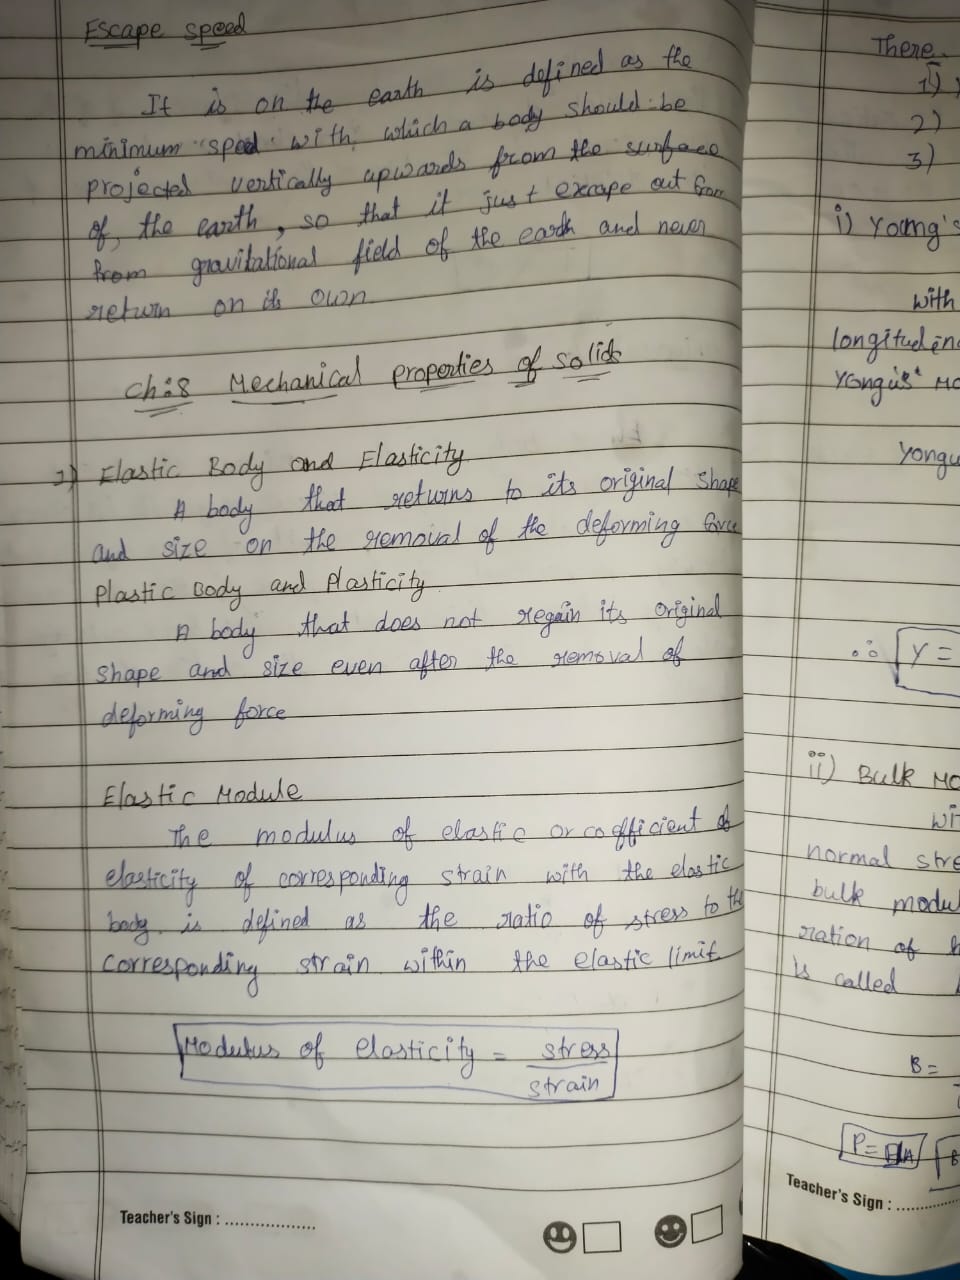 Escape speed
It is on the earth is defined as the
minimum "speed" with, which a body should be
projected vertically upwards from the surface
of, the earth, so that it just excape out from
from gravitational field of the earth and never
return on its own
Ch:8 Mechanical properties of solids
1) Elastic Body and Elasticity
A body that returns to its original shape
and size on the removal of the deforming force
Plastic Body and Plasticity
A body that does not regain its original
shape and size even after the removal of
deforming force
Elastic Module
The modulus of elastic or coefficient of
elasticity of corresponding strain with the elastic
body is defined as the ratio of stress to the
corresponding strain within the elastic limit.
Modulus of elasticity = stress
strain
Teacher's Sign : ..................
There
1)
2)
3)
i) Young's
with
longitudin
Yongus' Mo
Yongu
∴ Y =
ii) Bulk Mo
wi
normal stre
bulk modul
ration of
is called
B =
P = F/A
Teacher's Sign : ............